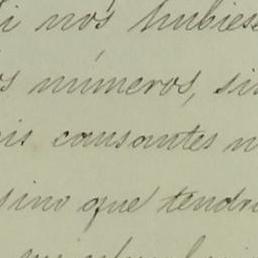 i nos hubiese
os números, sin
is causantes n
sino que tendr